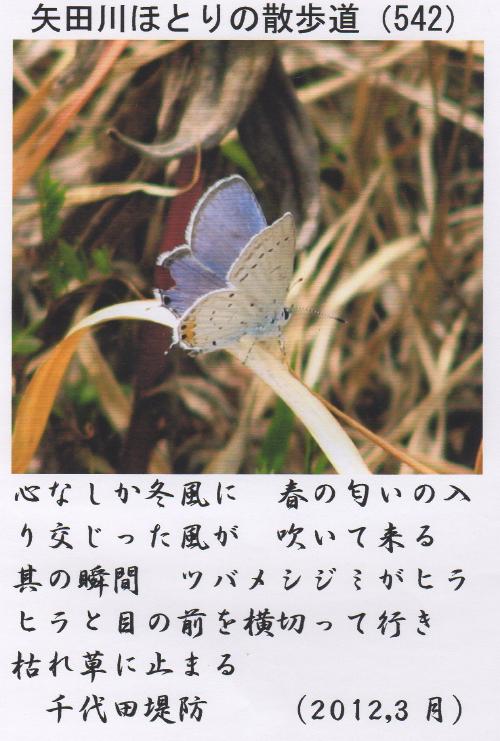 矢田川ほとりの散歩道（542）
心なしか冬風に　春の匂いの入
り交じった風が　吹いて来る
其の瞬間　ツバメシジミがヒラ
ヒラと目の前を横切って行き
枯れ草に止まる
千代田堤防　（2012,3 月）